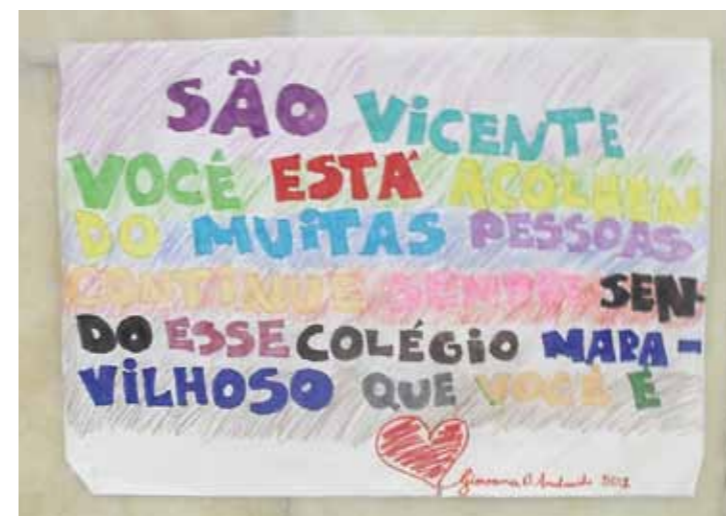 SÃO ViCENTE
VOCÊ ESTÁ ACOLHEN
DO MUiTAS PESSOAS
CONTINUE SEMPRE SEN-
DO ESSE COLÉGiO MARA-
ViLHOSO QUE VOCÊ É
Giovana